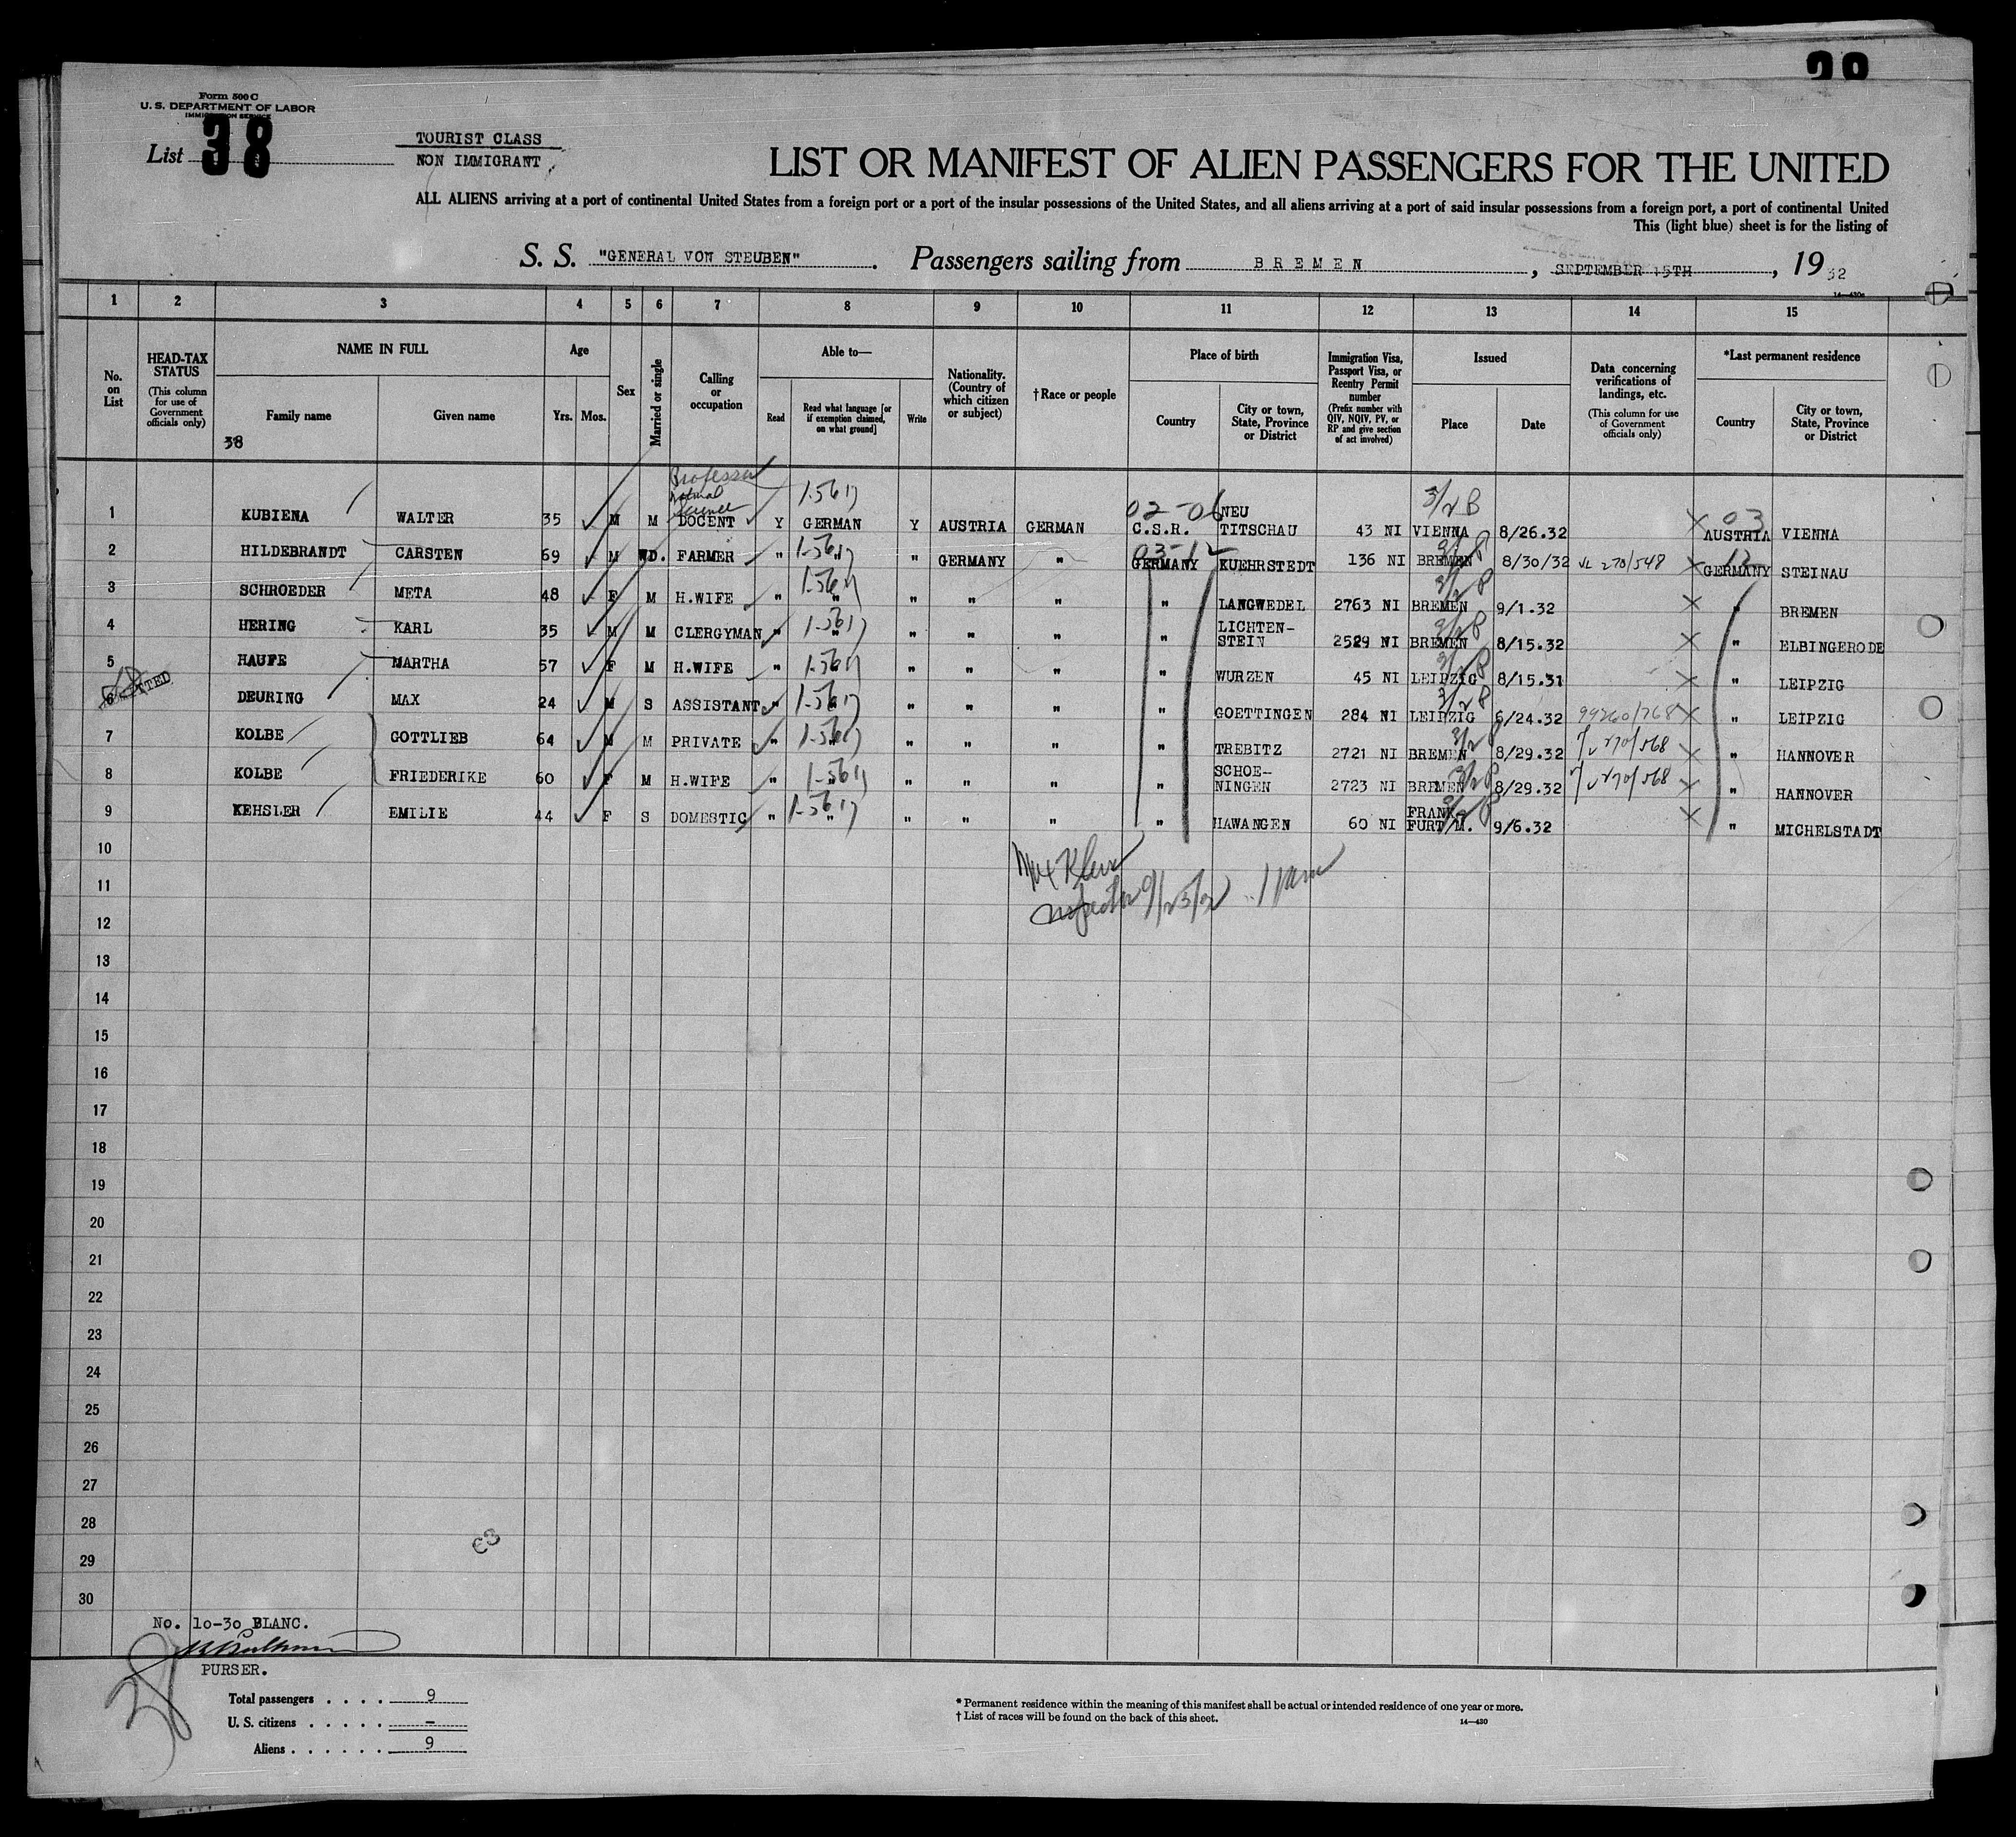 Form 500 C
U. S. DEPARTMENT OF LABOR
IMMIGRATION SERVICE
List 38
TOURIST CLASS
NON IMMIGRANT
LIST OR MANIFEST OF ALIEN PASSENGERS FOR THE UNITED
ALL ALIENS arriving at a port of continental United States from a foreign port or a port of the insular possessions of the United States, and all aliens arriving at a port of said insular possessions from a foreign port, a port of continental United
This (light blue) sheet is for the listing of
S. S. "GENERAL VON STEUBEN". Passengers sailing from BREMEN, SEPTEMBER 15TH, 1932
14—430a
1 2 3 4 5 6 7 8 9 10 11 12 13 14 15
No. on List
HEAD-TAX STATUS (This column for use of Government officials only)
NAME IN FULL
Family name
Given name
Age
Yrs. Mos.
Sex
Married or single
Calling or occupation
Able to—
Read
Read what language [or if exemption claimed, on what ground]
Write
Nationality. (Country of which citizen or subject)
†Race or people
Place of birth
Country
City or town, State, Province or District
Immigration Visa, Passport Visa, or Reentry Permit number (Prefix number with QIV, NQIV, PV, or RP and give section of act involved)
Issued
Place
Date
Data concerning verifications of landings, etc. (This column for use of Government officials only)
*Last permanent residence
Country
City or town, State, Province or District
38
Professor
natural
science
1 KUBIENA WALTER 35 M M DOCENT Y GERMAN Y AUSTRIA GERMAN 02-06 C.S.R. NEU TITSCHAU 43 NI VIENNA 8/26.32 03 AUSTRIA VIENNA
2 HILDEBRANDT CARSTEN 69 M WD. FARMER " " " GERMANY " GERMANY KUEHRSTEDT 136 NI BREMEN 8/30/32 270/548 GERMANY STEINAU
3 SCHROEDER META 48 F M H.WIFE " " " " " " LANGWEDEL 2763 NI BREMEN 9/1.32 " BREMEN
4 HERING KARL 35 M M CLERGYMAN " " " " " " LICHTEN-STEIN 2529 NI BREMEN 8/15.32 " ELBINGERODE
5 HAUFE MARTHA 57 F M H.WIFE " " " " " " WURZEN 45 NI LEIPZIG 8/15.31 " LEIPZIG
6 DEURING MAX 24 M S ASSISTANT " " " " " " GOETTINGEN 284 NI LEIPZIG 6/24.32 99260/768 " LEIPZIG
7 KOLBE GOTTLIEB 64 M M PRIVATE " " " " " " TREBITZ 2721 NI BREMEN 8/29.32 " HANNOVER
8 KOLBE FRIEDERIKE 60 F M H.WIFE " " " " " " SCHOE-NINGEN 2723 NI BREMEN 8/29.32 " HANNOVER
9 KEHSLER EMILIE 44 F S DOMESTIC " " " " " " HAWANGEN 60 NI FRANK-FURT/M. 9/6.32 " MICHELSTADT
10
11
12
13
14
15
16
17
18
19
20
21
22
23
24
25
26
27
28
29
30
No. 10-30 BLANC.
PURSER.
38
Total passengers . . . . 9
U. S. citizens . . . . . –
Aliens . . . . . . 9
* Permanent residence within the meaning of this manifest shall be actual or intended residence of one year or more.
† List of races will be found on the back of this sheet.
14—430